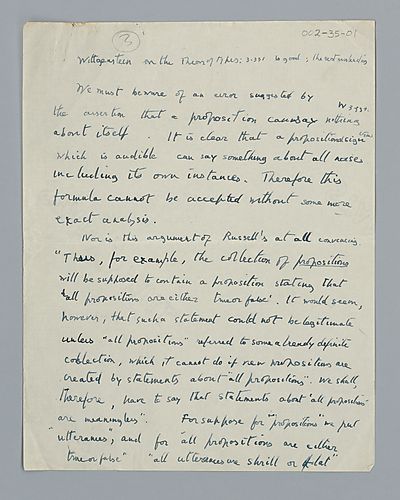 3
002-35-01
Wittgenstein on the Theory of Types: 3.331 is good; the rest mistaken
We must beware of an error suggested by
W 3.332.
the assertion that a proposition can say nothing
about itself. It is clear that a propositional sign
which is audible can say something about all noises
including its own instances. Therefore this
formula cannot be accepted without some more
exact analysis.
Nor is this argument of Russell's at all convincing
"Thus, for example, the collection of propositions
will be supposed to contain a proposition stating that
'all propositions are either true or false'. It would seem,
however, that such a statement could not be legitimate
unless "all propositions" referred to some already definite
collection, which it cannot do if new propositions are
created by statements about "all propositions". We shall,
therefore, have to say that statements about "all propositions"
are meaningless". For suppose for "propositions" we put
"utterances", and for all propositions are either
true or false" "all utterances are shrill or flat"